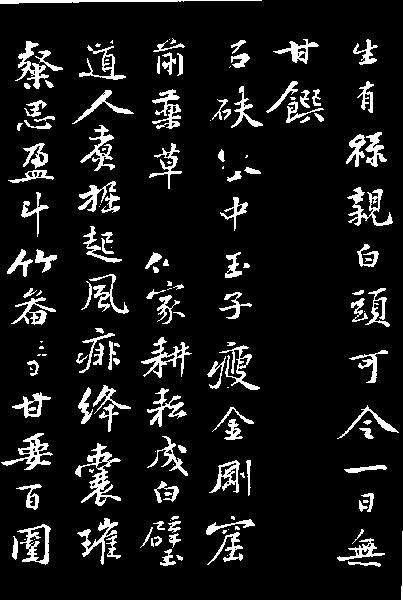 生有祿親白頭可令一日無
甘饌
石砆谷中玉子瘦金剛窟
前藥草 家耕耘成白璧
道人煮掘起風痱絳囊璀
粲思盈斗竹畚 甘要百圍